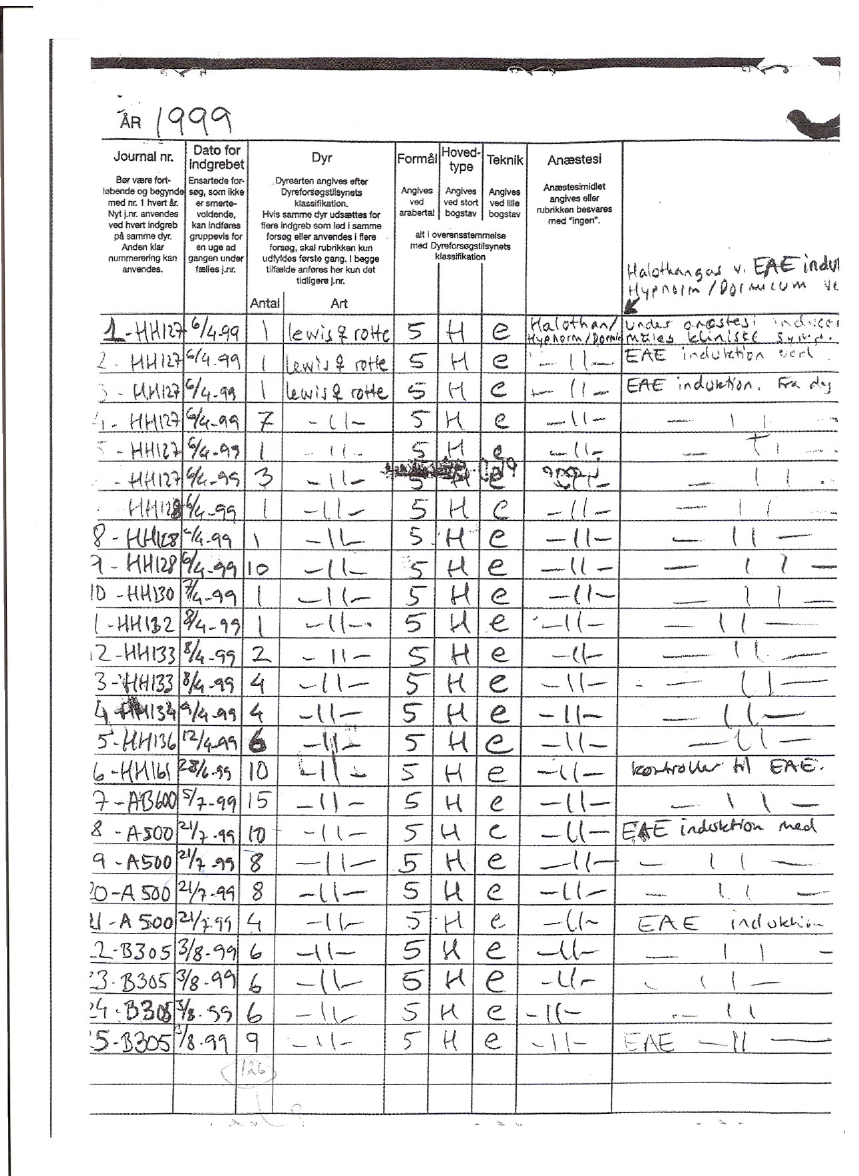 ÅR 1999
Journal nr.
Bør være fort-
løbende og begynde
med nr. 1 hvert år.
Nyt j.nr. anvendes
ved hvert indgreb
på samme dyr.
Anden klar
nummerering kan
anvendes.
Dato for
indgrebet
Ensartede for-
søg, som ikke
er smerte-
voldende,
kan indføres
gruppevis for
en uge ad
gangen under
fælles j.nr.
Dyr
Dyrearten angives efter
Dyreforsøgstilsynets
klassifikation.
Hvis samme dyr udsættes for
flere indgreb som led i samme
forsøg eller anvendes i flere
forsøg, skal rubrikken kun
udfyldes første gang. I begge
tilfælde anføres her kun det
tidligere j.nr.
Antal Art
Formål
Angives
ved
arabertal
Hoved-
type
Angives
ved stort
bogstav
Teknik
Angives
ved lille
bogstav
alt i overensstemmelse
med Dyreforsøgstilsynets
klassifikation
Anæstesi
Anæstesimidlet
angives eller
rubrikken besvares
med "ingen".
Halothangas v. EAE induk
Hypnorm/Dormicum ve
1-HH127 6/4-99 1 lewis ♀ rotte 5 H e Halothan/ under anæstesi inducer
Hypnorm/Dormic måles kliniske sympt.
2-HH127 6/4-99 1 lewis ♀ rotte 5 H e -11- EAE induktion
3-HH127 6/4-99 1 lewis ♀ rotte 5 H e -11- EAE induktion. Fra
4-HH127 6/4-99 7 -11- 5 H e -11- -11-
5-HH127 6/4-99 1 -11- 5 H e -11- -11-
-HH127 6/4-99 3 -11- 5 H e -11- -11-
HH128 6/4-99 1 -11- 5 H e -11- -11-
8-HH128 6/4-99 1 -11- 5 H e -11- -11-
9-HH128 6/4-99 10 -11- 5 H e -11- -11-
10-HH130 7/4-99 1 -11- 5 H e -11- -11-
1-HH132 8/4-99 1 -11- 5 H e -11- -11-
2-HH133 8/4-99 2 -11- 5 H e -11- -11-
3-HH133 8/4-99 4 -11- 5 H e -11- -11-
4 HH134 9/4-99 4 -11- 5 H e -11- -11-
5-HH136 12/4-99 6 -11- 5 H e -11- -11-
6-HH161 28/6-99 10 -11- 5 H e -11- kontroller til EAE.
7-AB600 5/7-99 15 -11- 5 H e -11- -11-
8-A500 21/7-99 10 -11- 5 H e -11- EAE induktion med
9-A500 21/7-99 8 -11- 5 H e -11- -11-
20-A500 21/7-99 8 -11- 5 H e -11- -11-
21-A500 21/7-99 4 -11- 5 H e -11- EAE induktion
22-B305 3/8-99 6 -11- 5 H e -11- -11-
23-B305 3/8-99 6 -11- 5 H e -11- -11-
24-B305 3/8-99 6 -11- 5 H e -11- -11-
25-B305 3/8-99 9 -11- 5 H e -11- EAE -11-
126